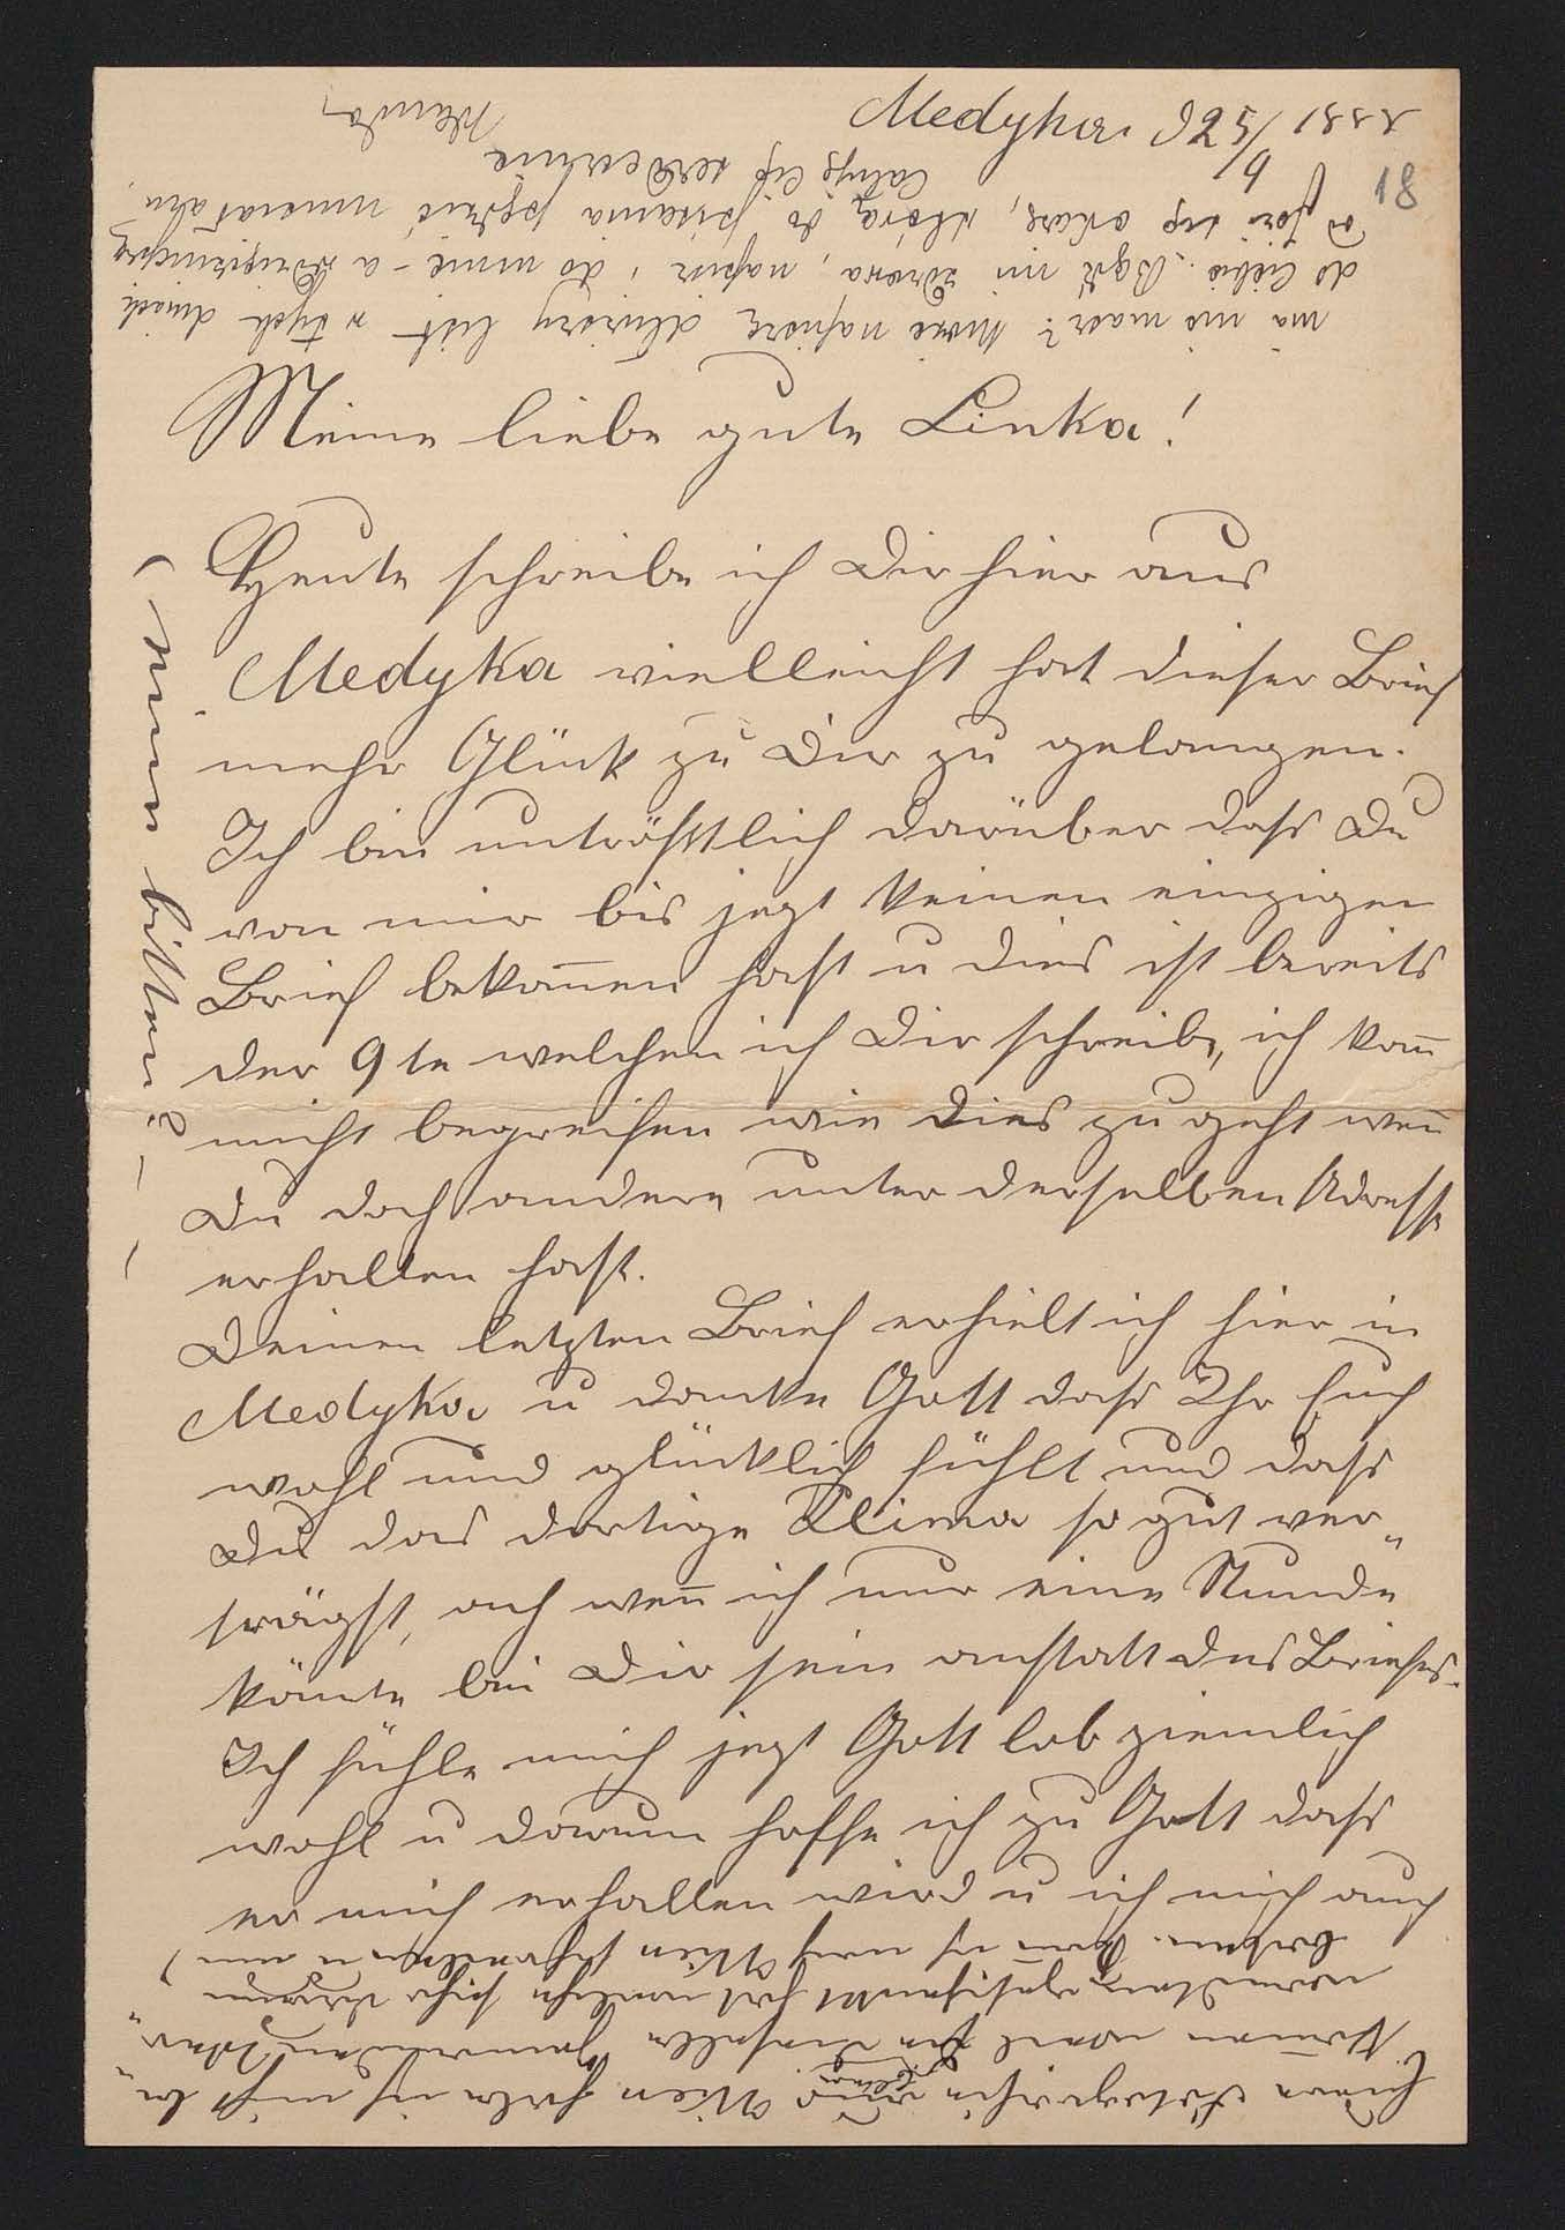 Medyka d 25/9 1881
18
Meine liebe gute Linka!
Heute schreibe ich Dir hier aus
Medyka vielleicht hat dieser Brief
mehr Glück zu Dir zu gelangen.
Ich bin untröstlich darüber dass Du
von mir bis jezt keinen einzigen
Brief bekom̄en hast u dies ist bereits
der 9te welchen ich Dir schreibe, ich kan̄
nicht begreifen wie dies zu geht wen̄
Du doch andere unter derselben Adresse
erhalten hast.
Deinen letzten Brief erhielt ich hier in
Medyka u danke Gott dass Ihr Euch
wohl und glücklich fühlt und dass
Du das dortige Klima so gut ver„
trägst, ach wen̄ ich nur eine Stunde
könnte bei Dir sein anstatt des Briefes.
Ich fühle mich jezt Gott lob ziemlich
wohl u darum hoffe ich zu Gott dass
er mich erhalten wird u ich mich auch
Euere Fotografien aus Wien habe ich nicht be„
kom̄en weil
haben. Kan̄ ich nach Wien schreiben u um
(
ihnen bitten? —
ma nie masz? Może napiszę dłuższy list w tych dniach
do Ciebie. Bądź mi zdrowa, napisz i do mnie - a
się okaże, która do pisania pędzić
Całuję Cię serdecznie
Wanda